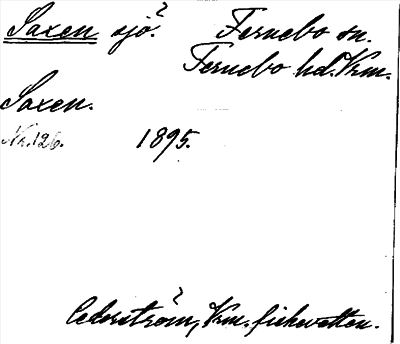 Saxen sjö? Fernebo sn.
Fernebo hd. Vrm.
Saxen.
Nr. 126. 1895.
Cederström, Vrm. fiskevatten.